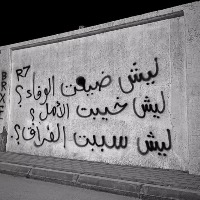 R7
ليش ضيعت الوفاء؟
ليش خيبت الأمل؟
ليش سببت الفراق؟